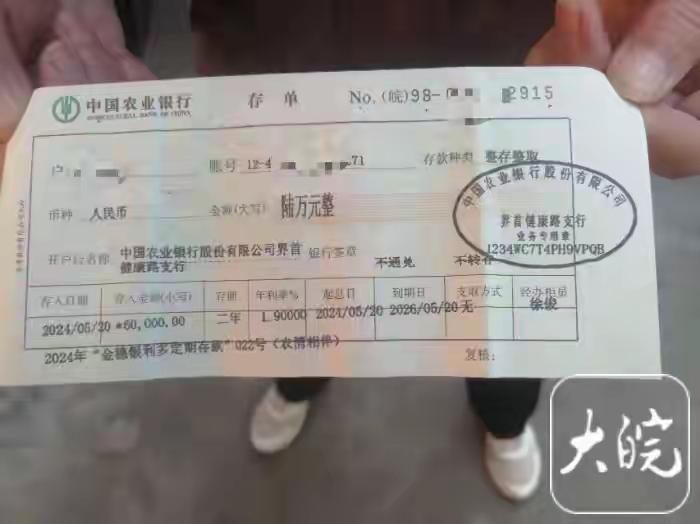 中国农业银行 存单 No.(皖)98- 2915
AGRICULTURAL BANK OF CHINA
户 账号 12-4 71 存款种类 整存整取
币种 人民币 金额(大写) 陆万元整
开户行名称 中国农业银行股份有限公司界首健康路支行 银行签章 不通兑 不转存
中国农业银行股份有限公司
界首健康路支行
业务专用章
1234WC7T4PH9VPQB
存入日期 存入金额(小写) 存期 年利率% 起息日 到期日 支取方式 经办柜员
2024/05/20 *60,000.00 二年 1.90000 2024/05/20 2026/05/20 无 徐俊
2024年“金穗银利多定期存款”022号(农情相伴) 复核:
大皖